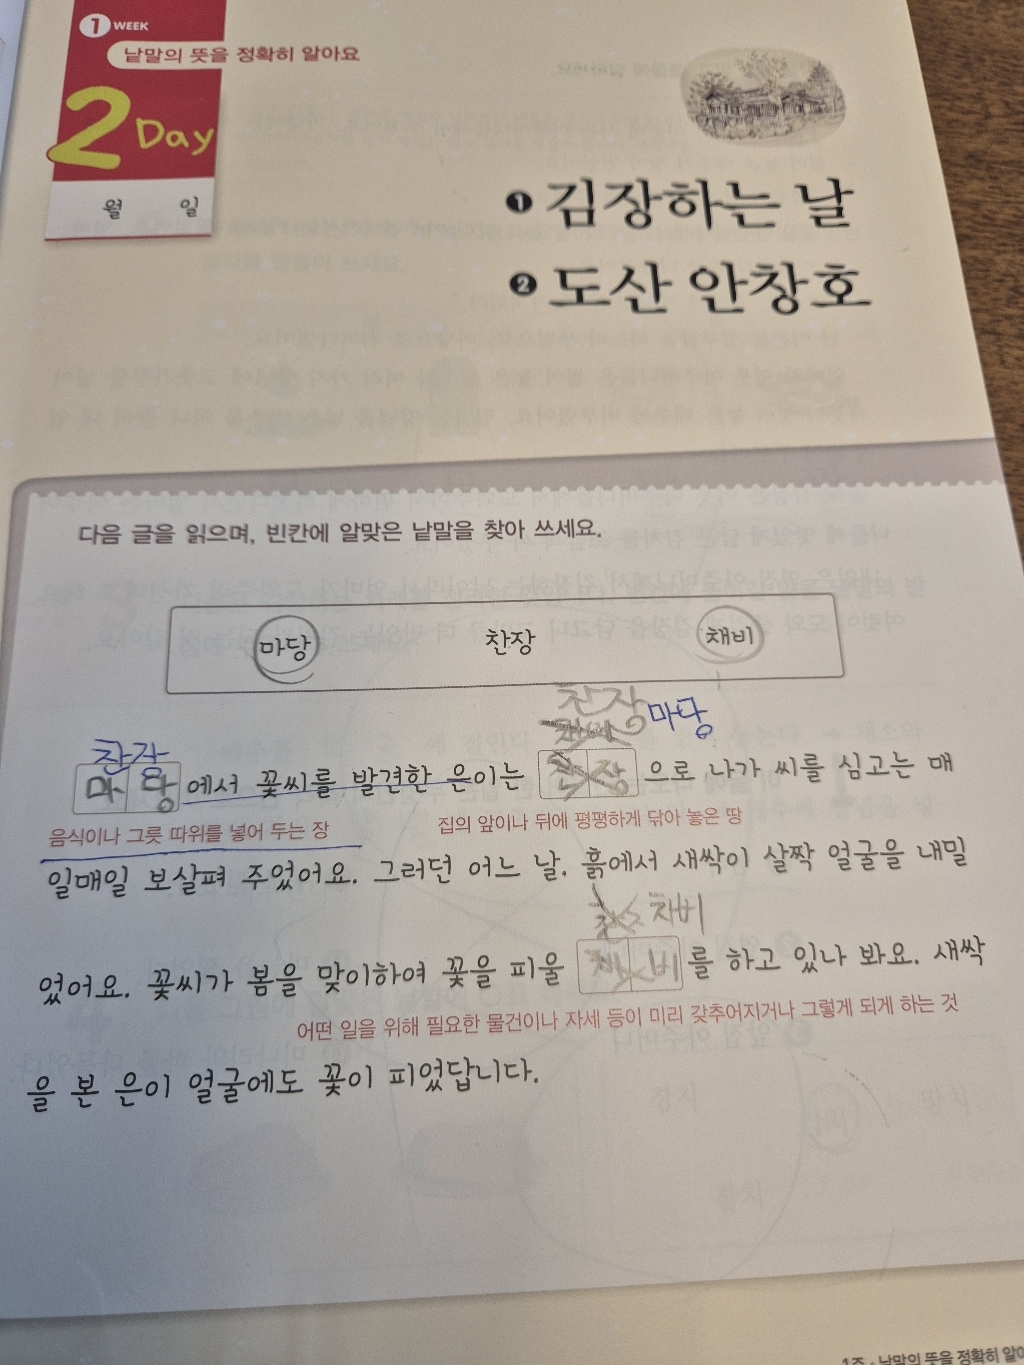 1 WEEK
낱말의 뜻을 정확히 알아요
2 Day
월 일
❶ 김장하는 날
❷ 도산 안창호
다음 글을 읽으며, 빈칸에 알맞은 낱말을 찾아 쓰세요.
마당 찬장 채비
찬장 마당
찬장
마당에서 꽃씨를 발견한 은이는 찬장으로 나가 씨를 심고는 매
음식이나 그릇 따위를 넣어 두는 장 집의 앞이나 뒤에 평평하게 닦아 놓은 땅
일매일 보살펴 주었어요. 그러던 어느 날. 흙에서 새싹이 살짝 얼굴을 내밀
채비
었어요. 꽃씨가 봄을 맞이하여 꽃을 피울 채비를 하고 있나 봐요. 새싹
어떤 일을 위해 필요한 물건이나 자세 등이 미리 갖추어지거나 그렇게 되게 하는 것
을 본 은이 얼굴에도 꽃이 피었답니다.
1주 · 낱말의 뜻을 정확히